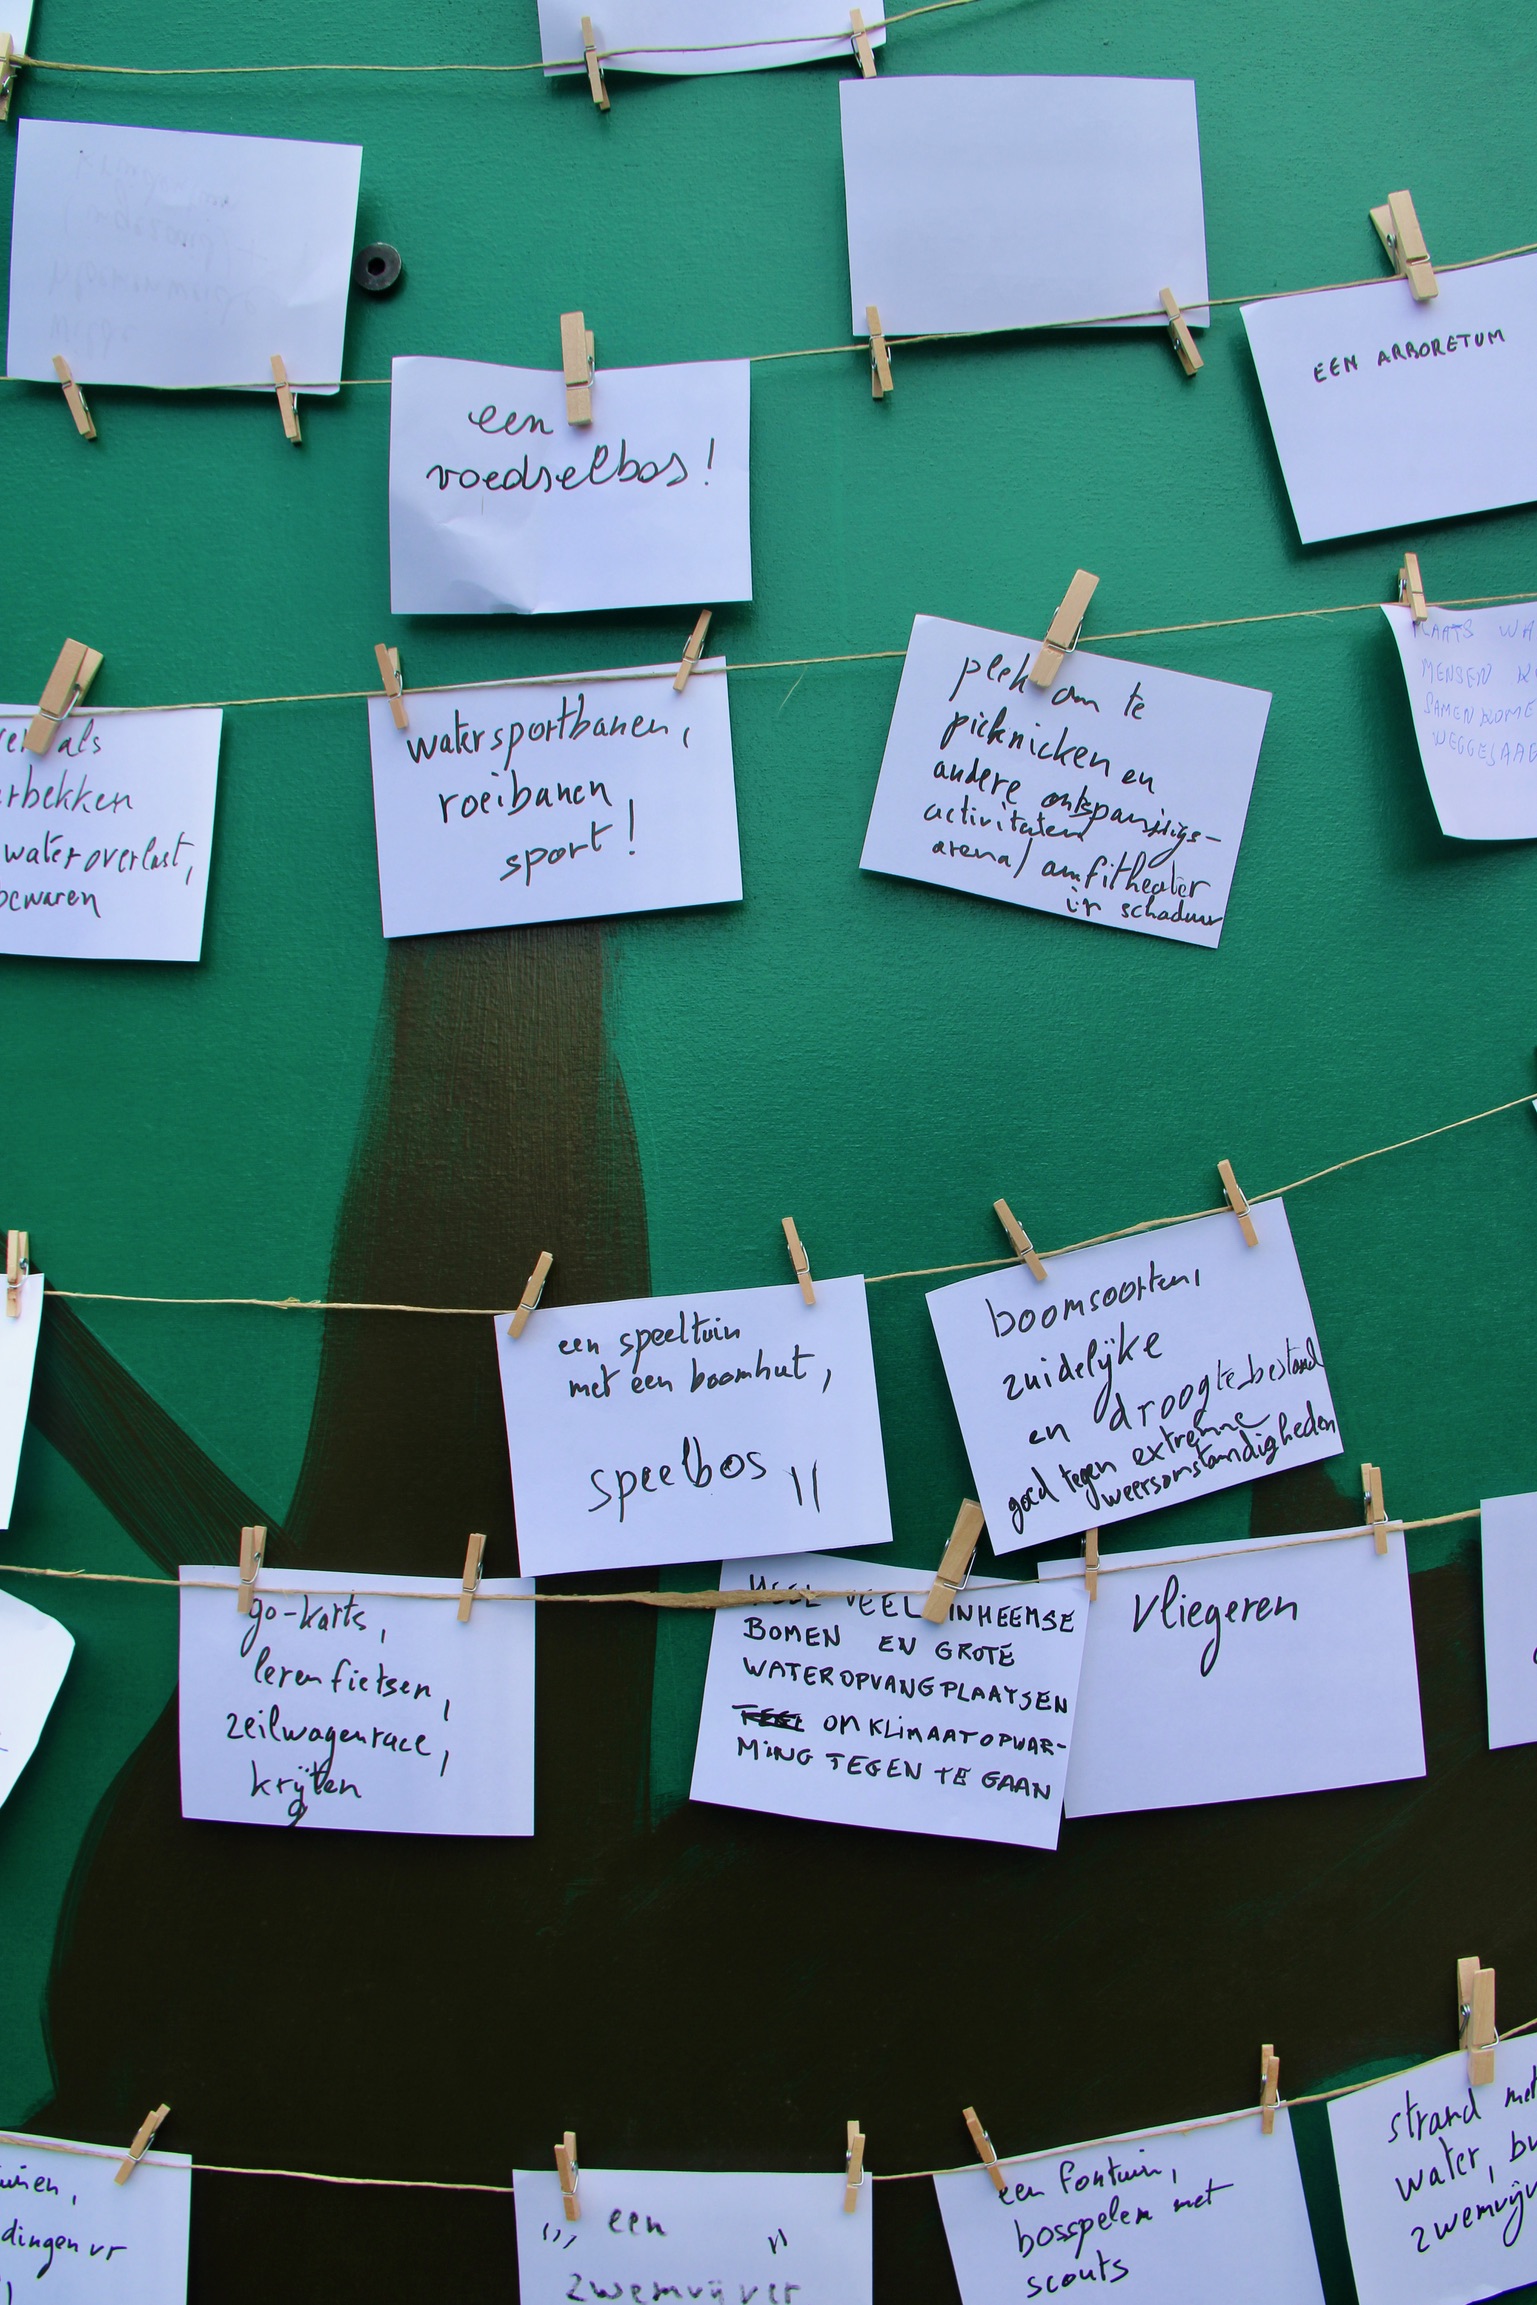 EEN ARBORETUM
een
voedselbos!
als
wateroverlast,
watersportbanen,
roeibanen
sport!
plek om te
picknicken en
andere ontspannings-
activiteiten
arena/ amfitheater
in schaduw
MENSEN
een speeltuin
met een boomhut,
speelbos
boomsoorten,
zuidelijke
en droogte-bestand
goed tegen extreme
weersomstandigheden
go-karts,
leren fietsen,
zeilwagenrace,
krijten
HEEL VEEL INHEEMSE
BOMEN EN GROTE
WATEROPVANGPLAATSEN
OM KLIMAATOPWAR-
MING TEGEN TE GAAN
vliegeren
een
zwemvijver
een fontuin,
bosspelen met
scouts
strand met
water,